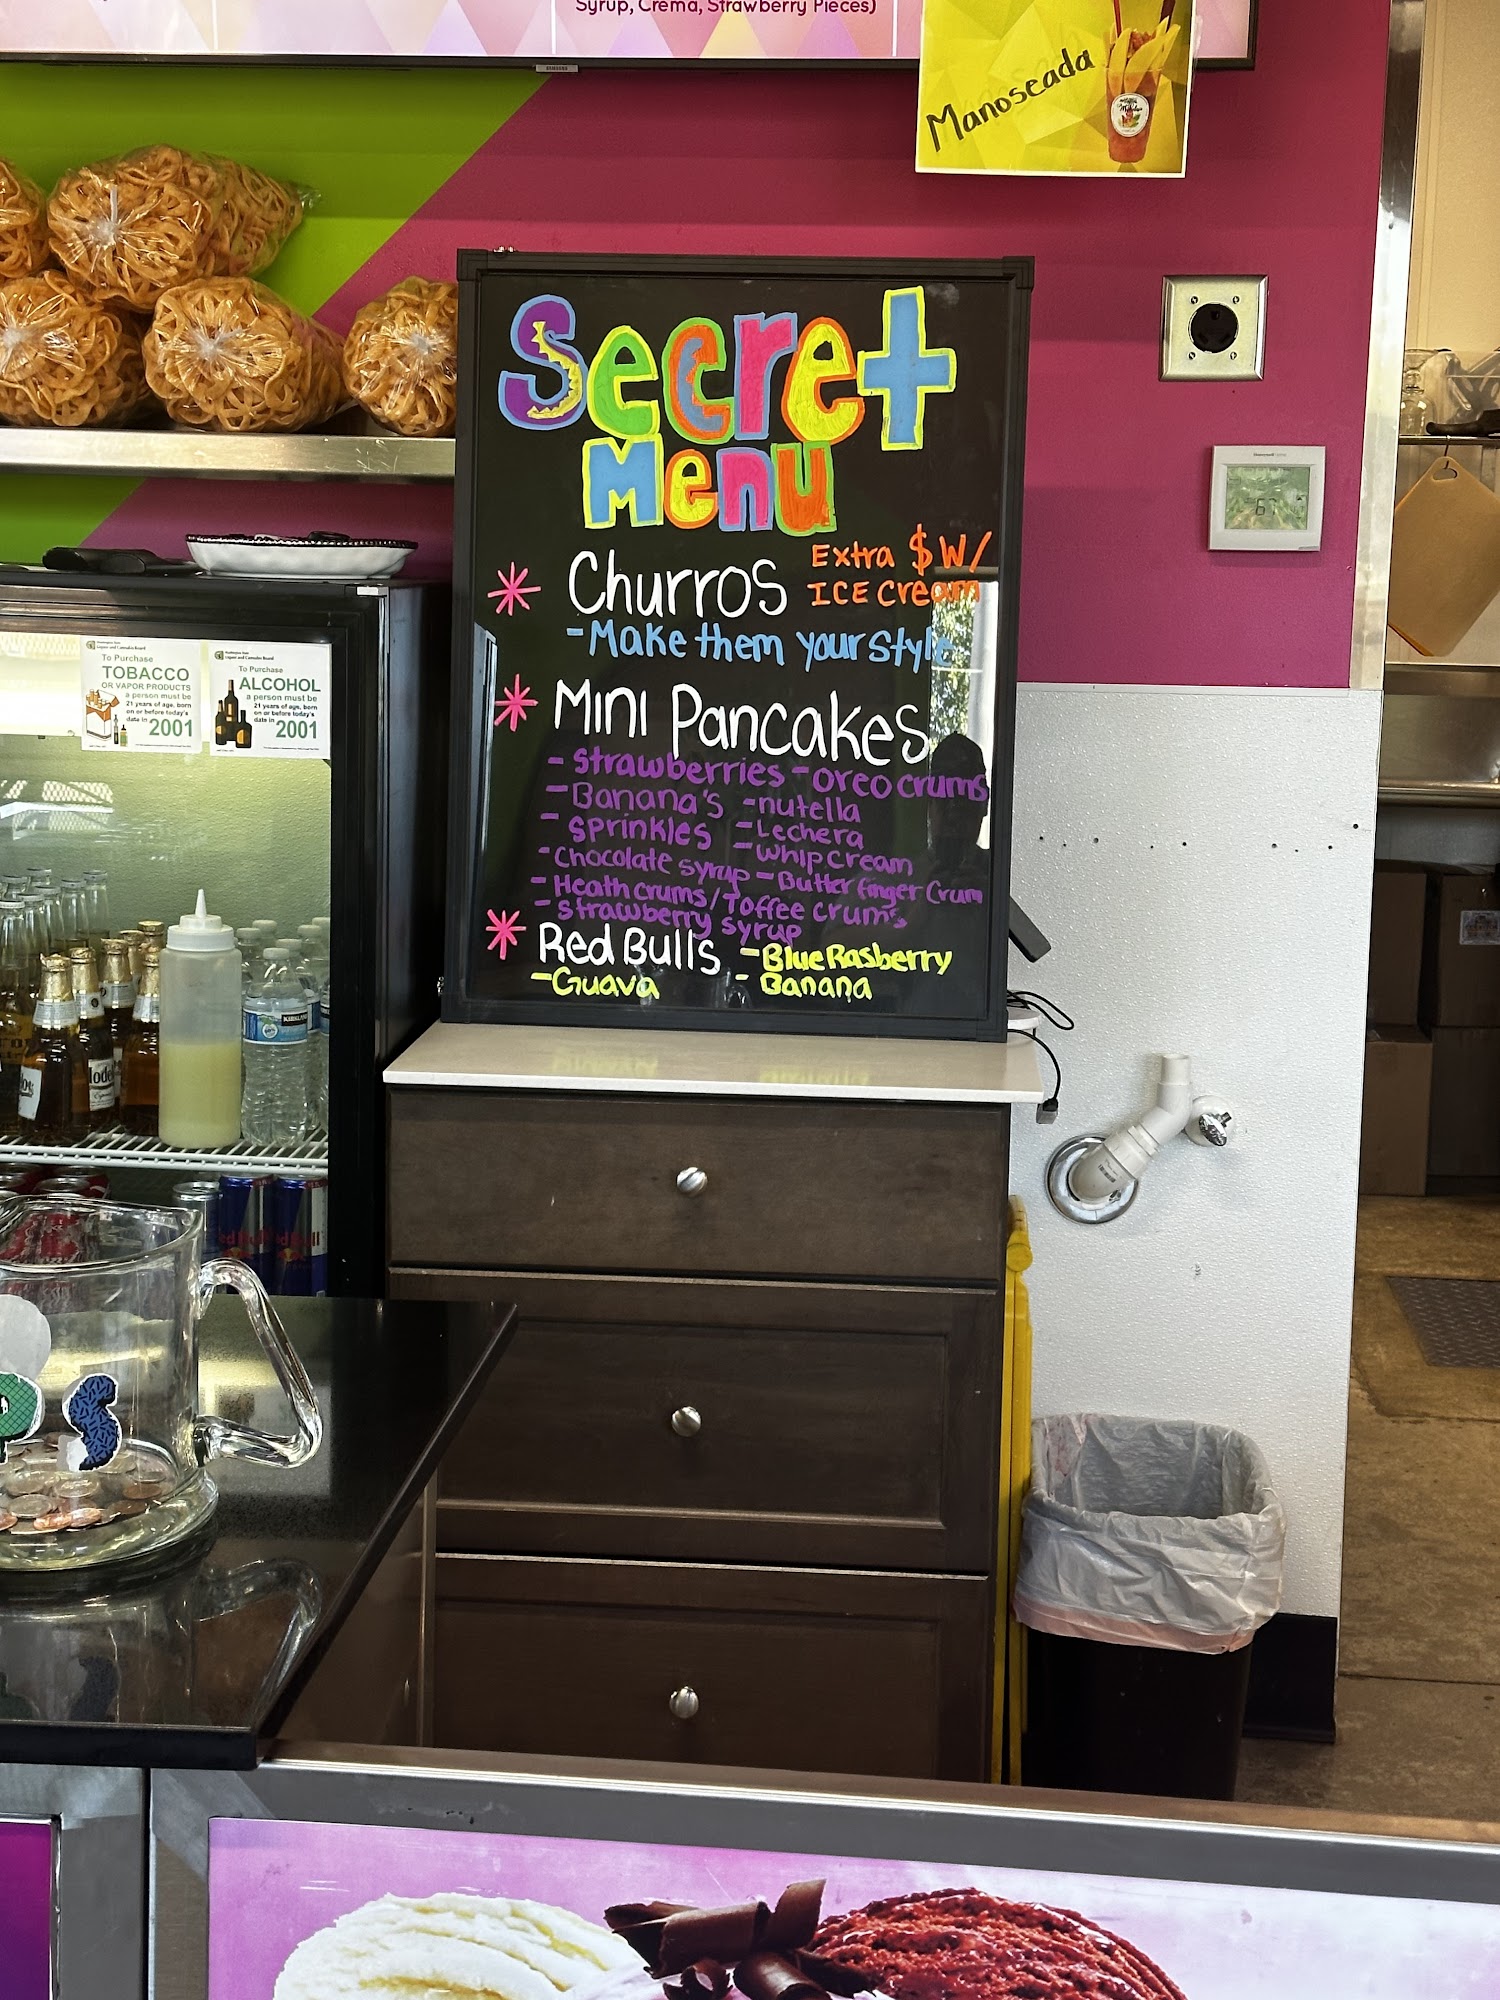 Syrup, Crema, Strawberry Pieces)
Manoseada
Secret
Menu
* Churros Extra $ W/
ICE Cream
- Make them your Style
* Mini Pancakes
- Strawberries - oreo crums
- Banana's - nutella
- Sprinkles - Lechera
- whip cream
- Chocolate syrup - Butter finger Crum
- Heath crums / Toffee crums
- Strawberry syrup
* Red Bulls - Blue Rasberry
- Guava - Banana
To Purchase
TOBACCO
OR VAPOR PRODUCTS
a person must be
21 years of age, born
on or before today's
date in 2001
Liquor and Cannabis Board
To Purchase
ALCOHOL
a person must be
21 years of age, born
on or before today's
date in 2001
67
KIRKLAND
Mode
Red Bull
RedBull
PS